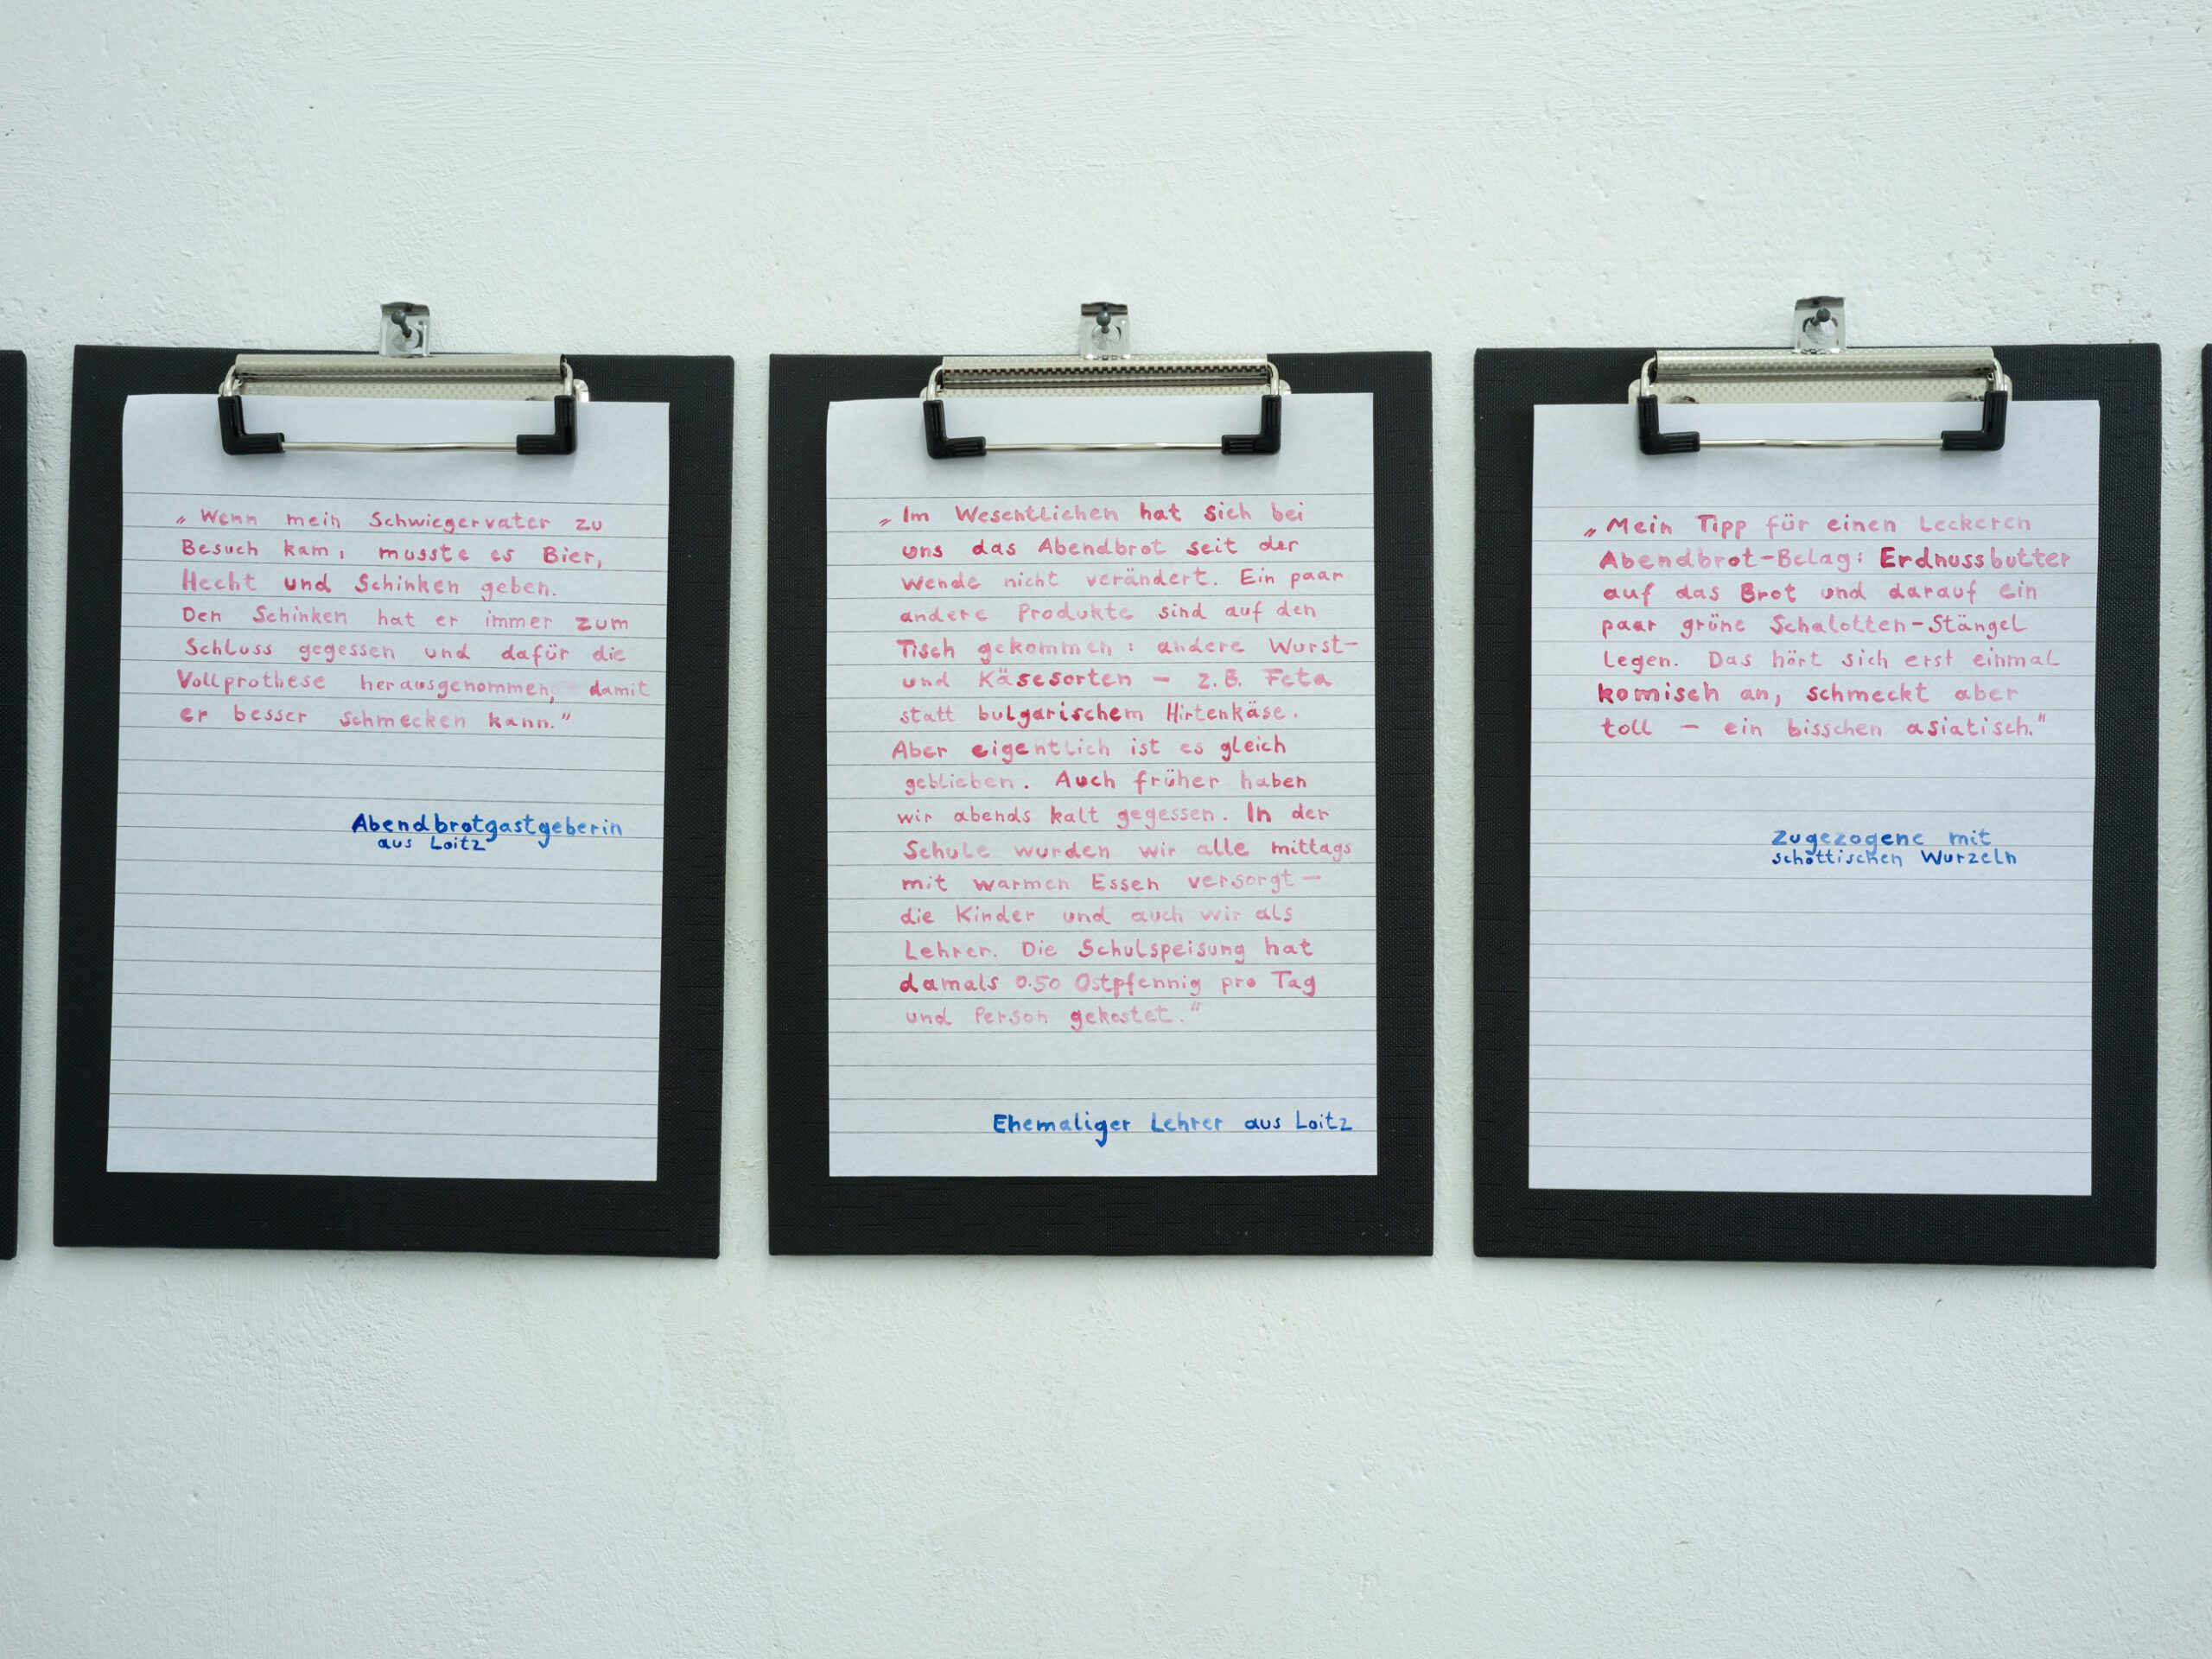 „Wenn mein Schwiegervater zu
Besuch kam, musste es Bier,
Hecht und Schinken geben.
Den Schinken hat er immer zum
Schluss gegessen und dafür die
Vollprothese herausgenommen, damit
er besser schmecken kann."
Abendbrotgastgeberin
aus Loitz
„Im Wesentlichen hat sich bei
uns das Abendbrot seit der
Wende nicht verändert. Ein paar
andere Produkte sind auf den
Tisch gekommen: andere Wurst-
und Käsesorten – z.B. Feta
statt bulgarischem Hirtenkäse.
Aber eigentlich ist es gleich
geblieben. Auch früher haben
wir abends kalt gegessen. In der
Schule wurden wir alle mittags
mit warmen Essen versorgt –
die Kinder und auch wir als
Lehrer. Die Schulspeisung hat
damals 0.50 Ostpfennig pro Tag
und Person gekostet."
Ehemaliger Lehrer aus Loitz
„Mein Tipp für einen leckeren
Abendbrot-Belag: Erdnussbutter
auf das Brot und darauf ein
paar grüne Schalotten-Stängel
legen. Das hört sich erst einmal
komisch an, schmeckt aber
toll – ein bisschen asiatisch."
Zugezogene mit
schottischen Wurzeln